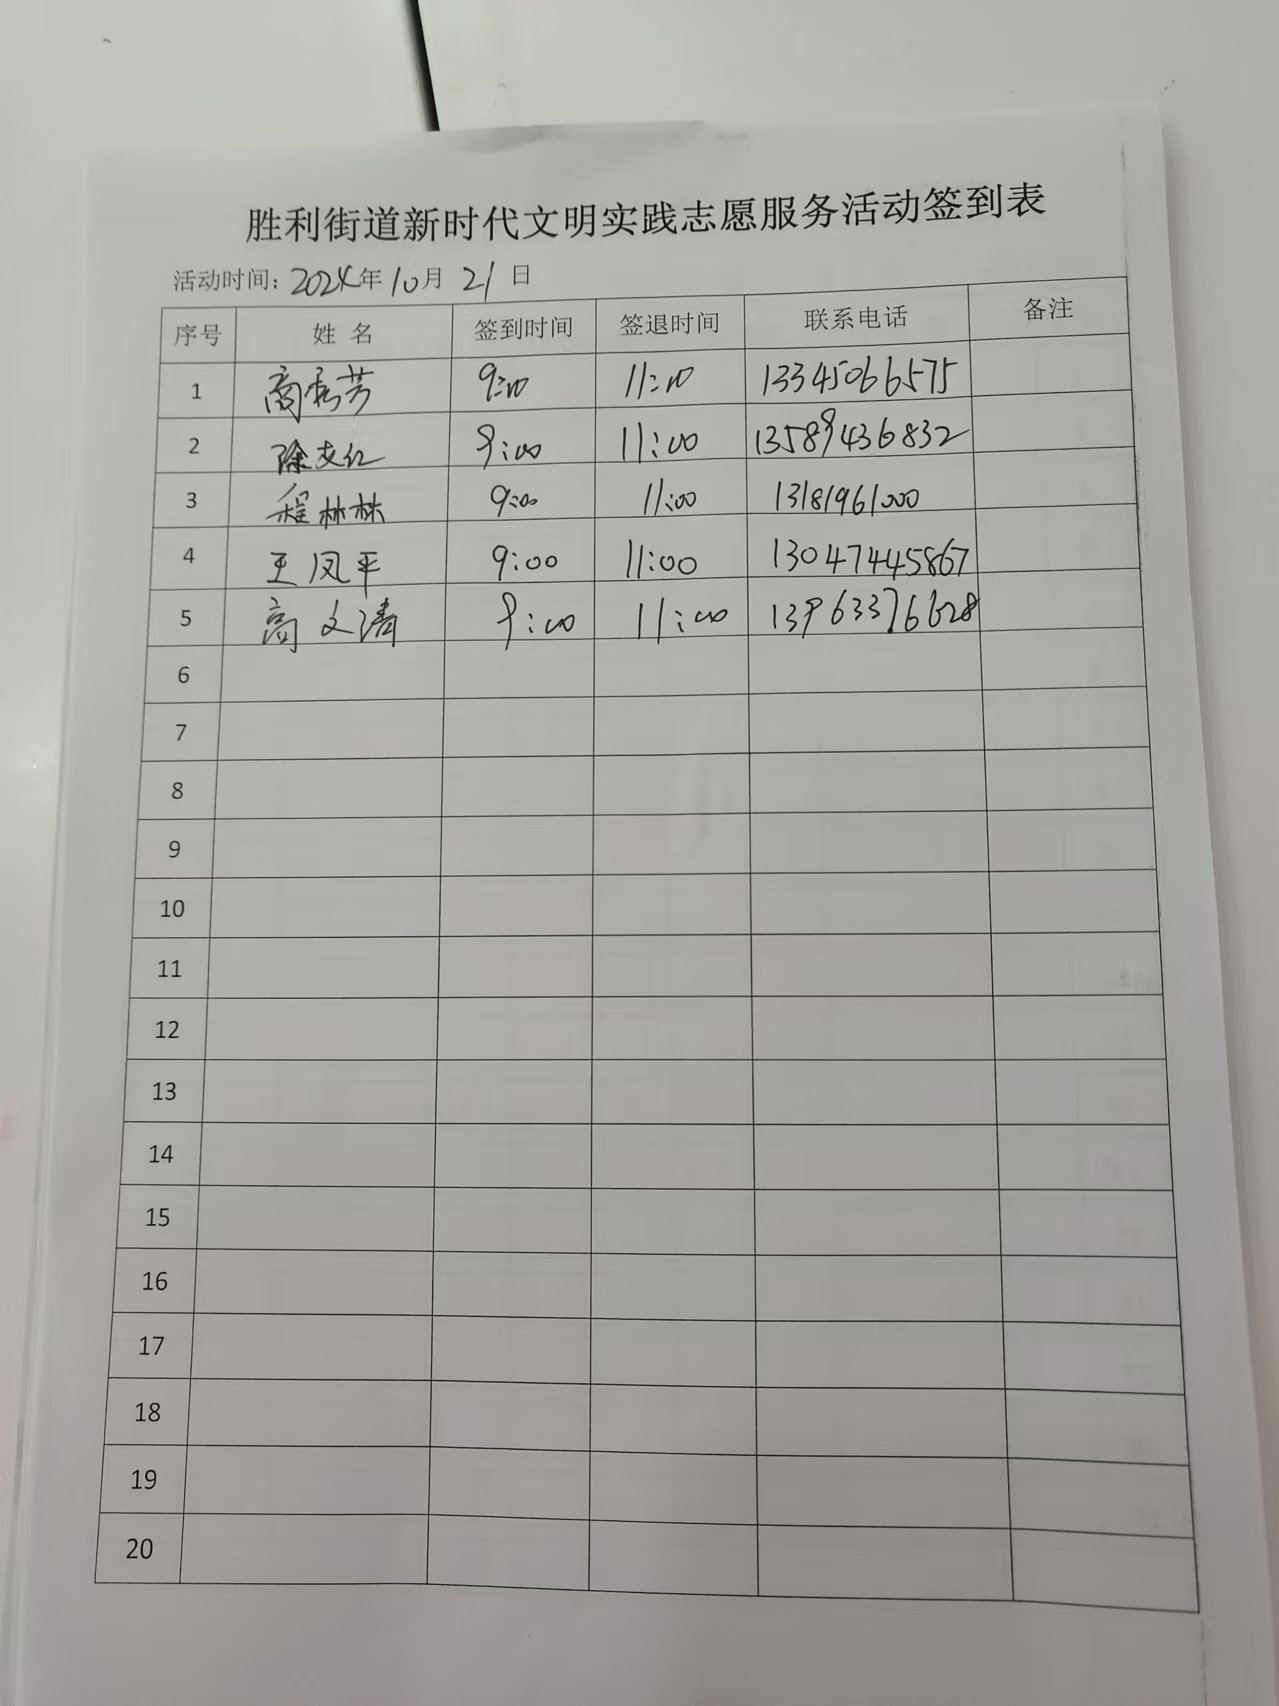 胜利街道新时代文明实践志愿服务活动签到表
活动时间：2024年10月21日
序号 姓 名 签到时间 签退时间 联系电话 备注
1 商秀芳 9:00 11:00 13345066575
2 徐友红 9:00 11:00 13589436832
3 程林林 9:00 11:00 13181961000
4 王凤平 9:00 11:00 13047445867
5 高文涛 9:00 11:00 13963376628
6
7
8
9
10
11
12
13
14
15
16
17
18
19
20